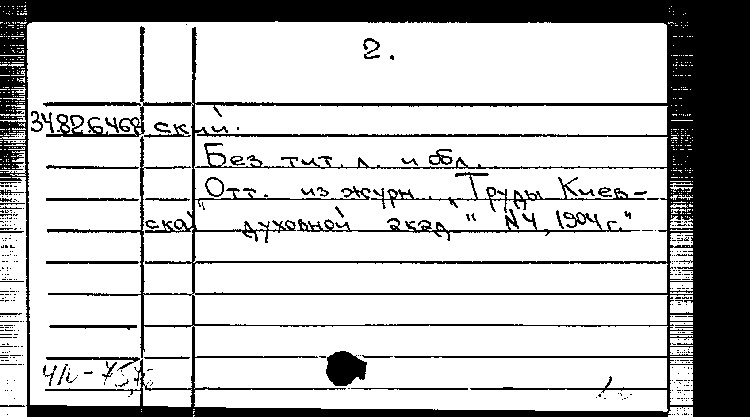 2.
34.826.468 ский.
Без тит. л. и обл.
"Отт. из журн. „Труды Киев-
ской духовной акад“ №4, 1904 г."